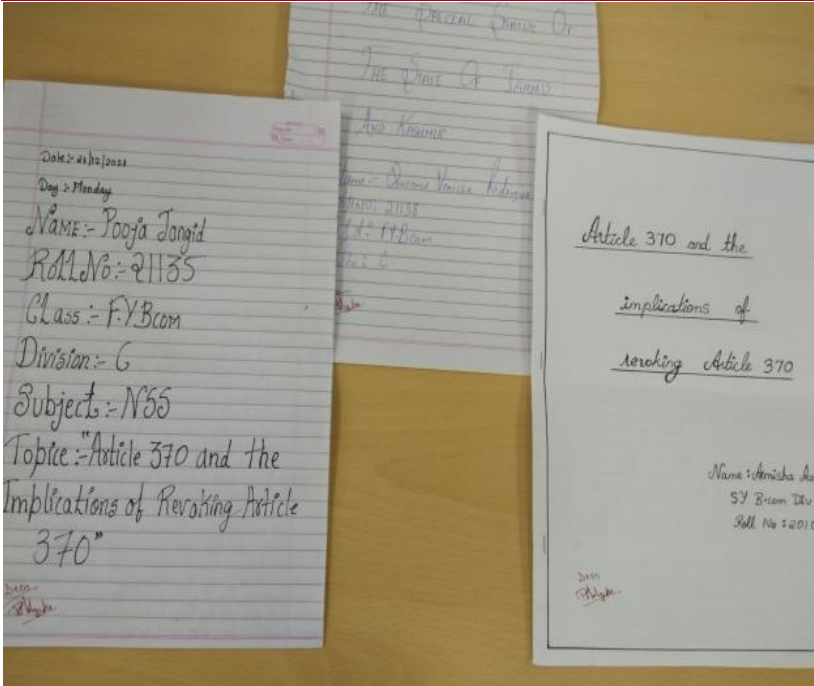 Date:- 21/12/2021
Day :- Monday
NAME:- Pooja Jangid
Roll No:- 21135
Class :- F.Y.Bcom
Division:- C
Subject:- NSS
Topice :- "Article 370 and the
Implications of Revoking Article
370"
Seen
THE SPECIAL STATUS OF
THE STATE OF JAMMU
AND KASHMIR
21138
F.Y.Bcom
C
Article 370 and the
implications of
revoking Article 370
Name : Amisha
SY B.com Div
Roll No : 2010
Seen